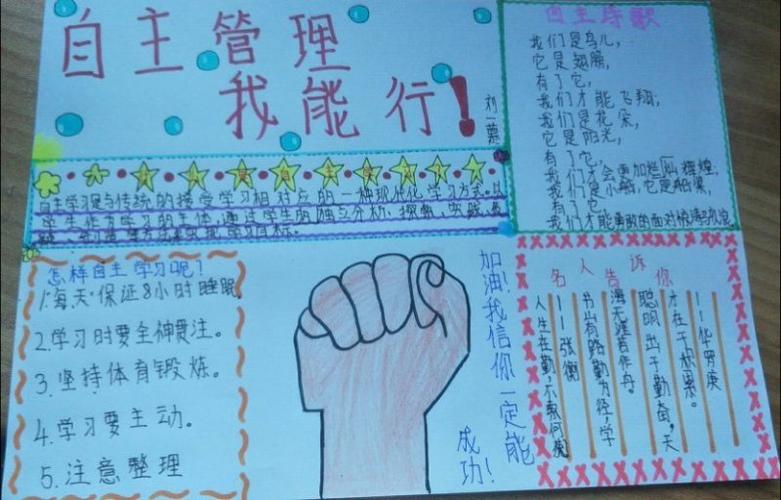 自主管理
我能行!
刘一
自主诗歌
我们是鸟儿,
它是翅膀,
有了它,
我们才能飞翔;
我们是花朵,
它是阳光,
有了它,
我们才会更加
我们是小船,它是船桨,
有了它
我们才能勇敢的面对
自主学习是与传统的接受学习相对应的一种现代化学习方式。以
学生作为学习的主体,通过学生的独立分析、探索、实践、质
学习目标。
怎样自主学习呢?
1.每天保证8小时睡眠
2.学习时要全神贯注。
3.坚持体育锻炼。
4.学习要主动。
5.注意整理
加油!我信你一定能
成功!
名人告诉你
——华罗庚
才在于积累。
聪明出于勤奋,天
海无涯苦作舟。
书山有路勤为径,学
——张衡
人生在勤,不索何获